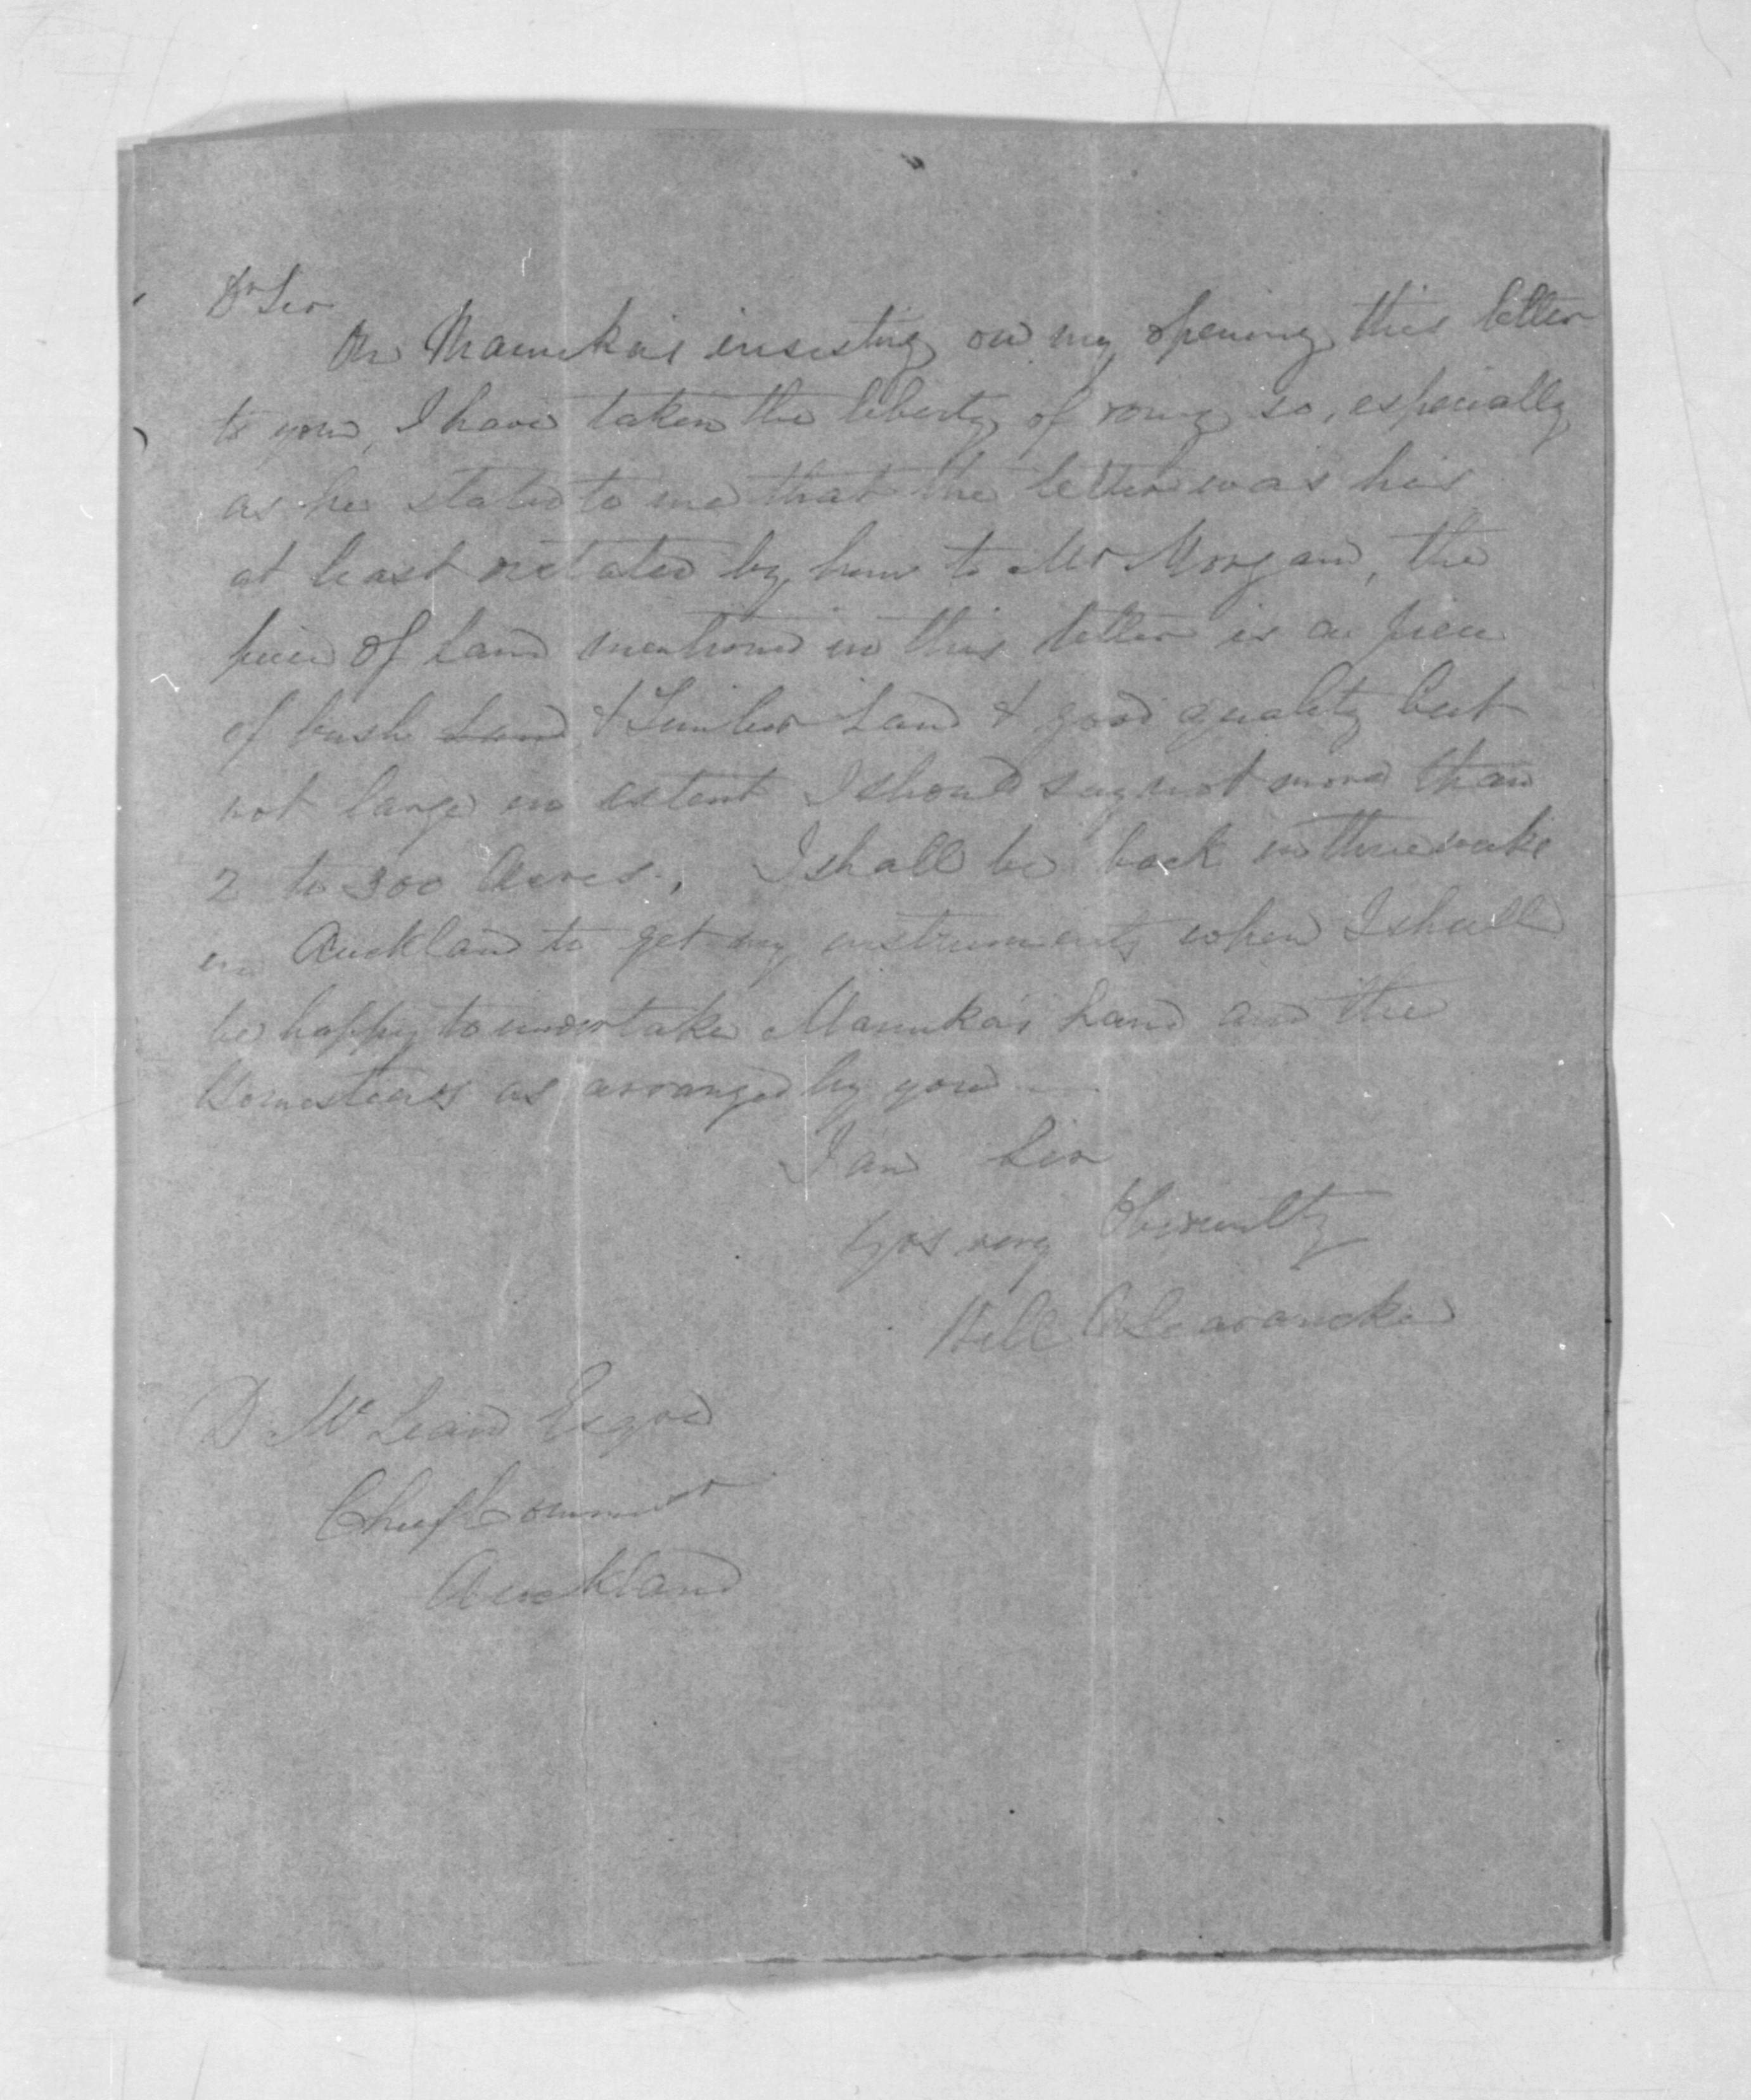 Dr Sir
On Manuka's insisting on my opening this letter
to you, I have taken the liberty of doing so, especially
as he stated to me that the letter was his
at least dictated by him to Mr Morgan, the
piece of Land mentioned in this letter is a piece
of bush Land & Timber Land & good quality but
not large in extent I should say not more than
2 to 300 Acres. I shall be back in three weeks
in Auckland to get my instruments when I shall
be happy to undertake Manuka's Land and the
Homesteads as arranged by you —
I am Sir
Yrs very Obediently
Will N Searancke
D McLean Esqre
Chief Commissr
Auckland